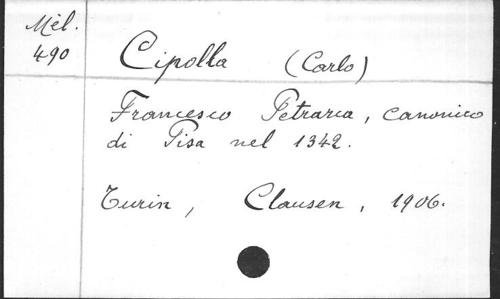 Mél.
490
Cipolla (Carlo)
Francesco Petrarca, canonico
di Pisa nel 1342.
Turin, Clausen, 1906.